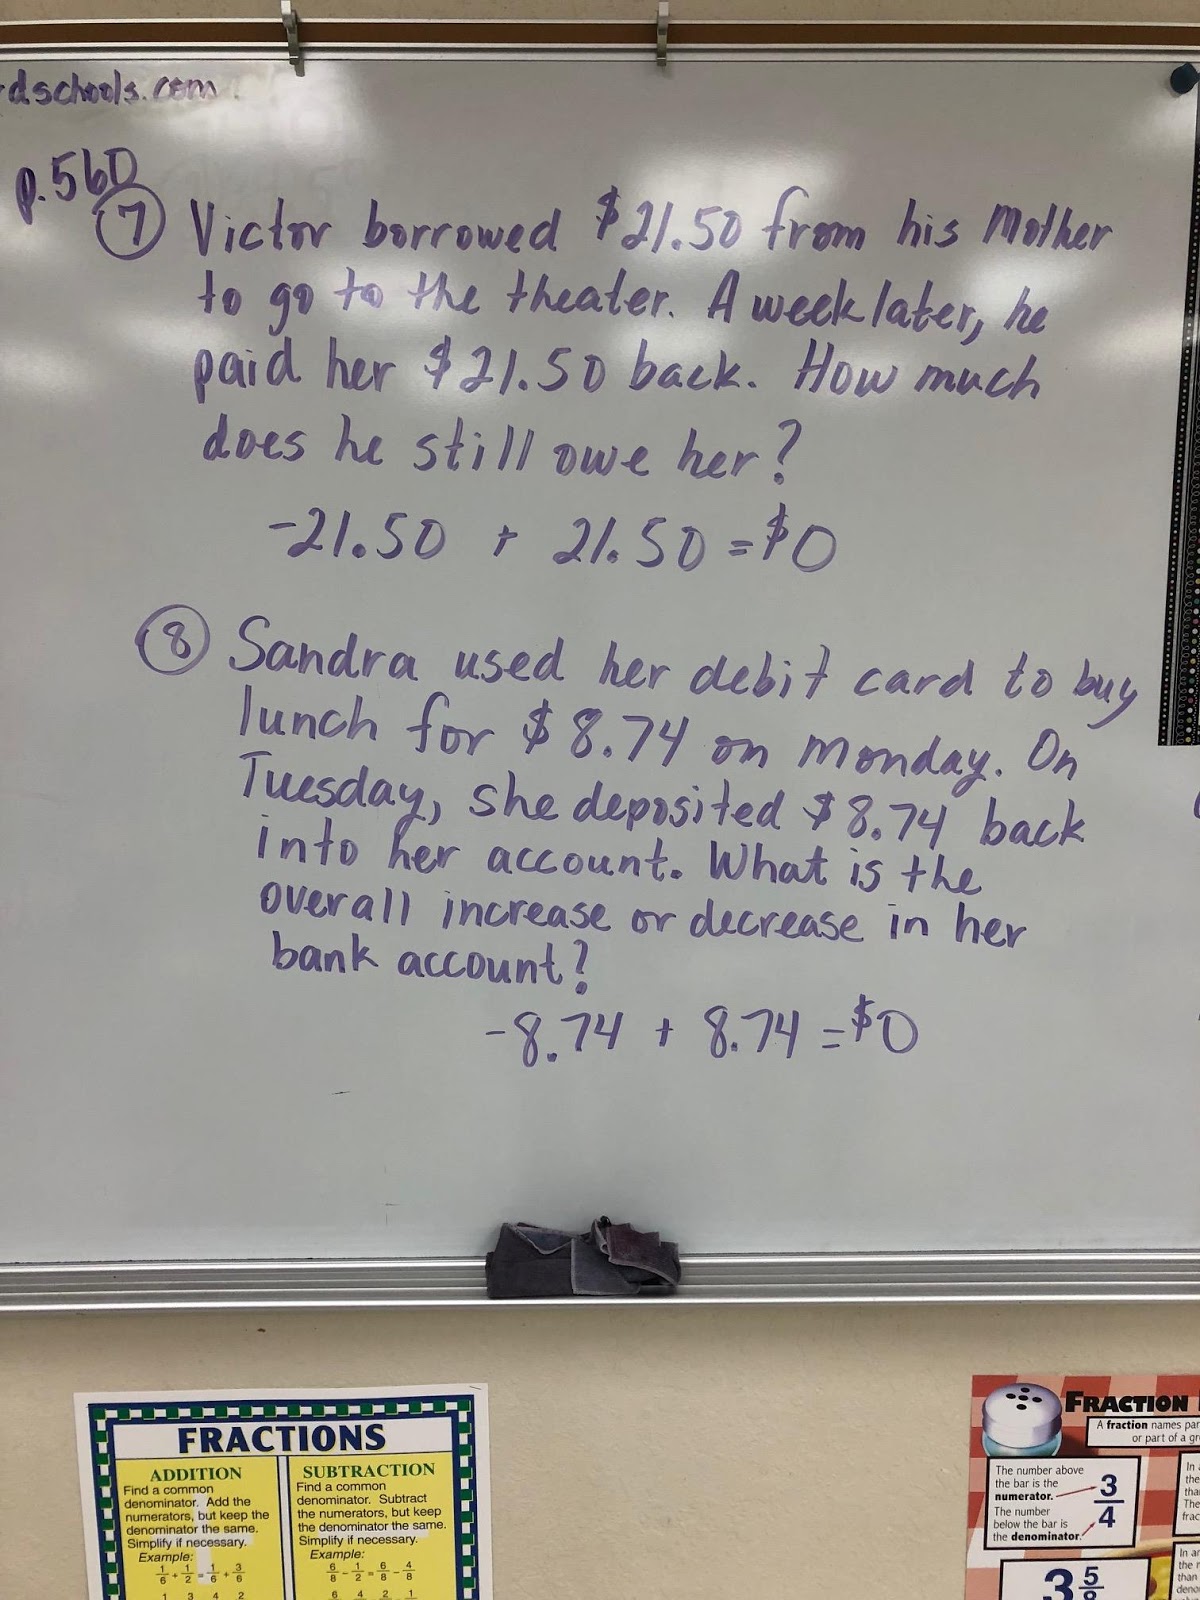 rdschools.com
p.560
7 Victor borrowed $21.50 from his Mother
to go to the theater. A week later, he
paid her $21.50 back. How much
does he still owe her?
-21.50 + 21.50 = $0
8 Sandra used her debit card to buy
lunch for $8.74 on Monday. On
Tuesday, she deposited $8.74 back
into her account. What is the
overall increase or decrease in her
bank account?
-8.74 + 8.74 = $0
FRACTIONS
ADDITION
Find a common
denominator. Add the
numerators, but keep the
denominator the same.
Simplify if necessary.
Example:
1/6 + 1/2 = 1/6 + 3/6
1 3 4 2
SUBTRACTION
Find a common
denominator. Subtract
the numerators, but keep
the denominator the same.
Simplify if necessary.
Example:
6/8 - 1/2 = 6/8 - 4/8
6 4 2 1
FRACTION
A fraction names par
or part of a gr
The number above
the bar is the
numerator.
The number
below the bar is
the denominator.
3/4
3 5
In
the
tha
The
frac
In a
the n
than
deno